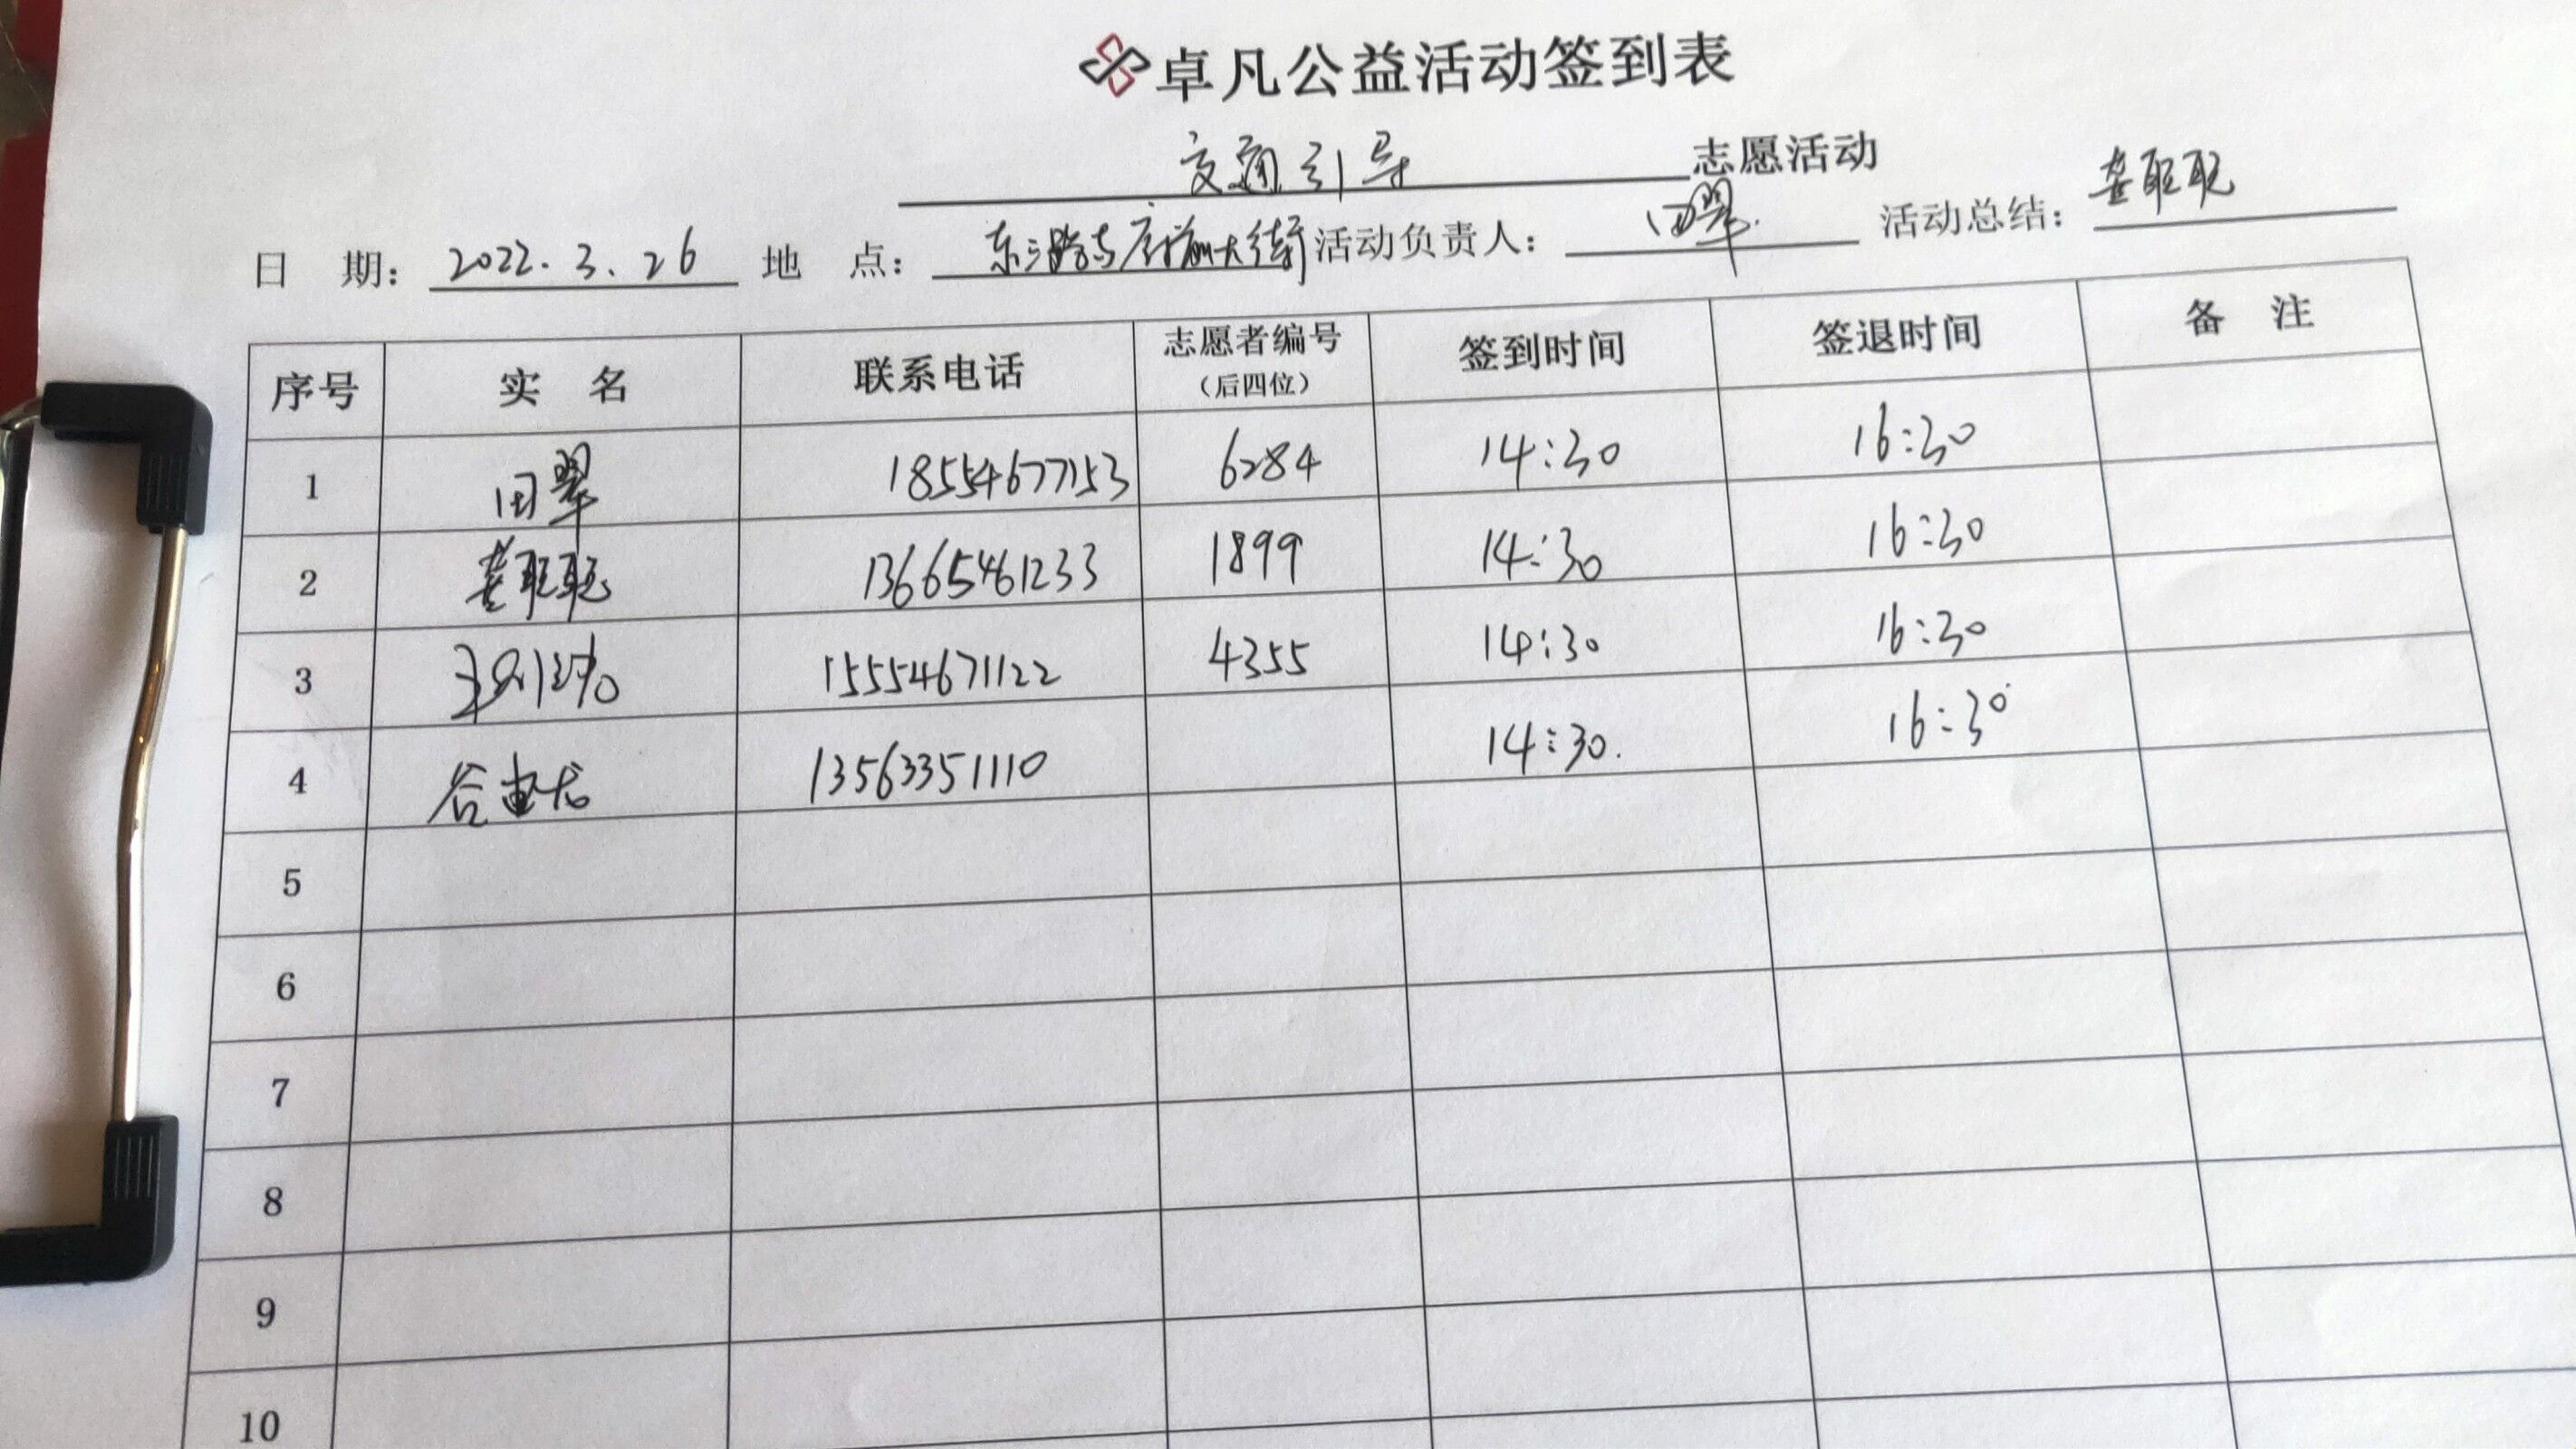 卓凡公益活动签到表
交通引导 志愿活动
日 期： 2022.3.26 地 点： 东三路与府前大街 活动负责人： 田翠 活动总结：
序号 实 名 联系电话 志愿者编号（后四位） 签到时间 签退时间 备 注
1 田翠 18554677153 6284 14:30 16:30
2 13665461233 1899 14:30 16:30
3 15554671122 4355 14:30 16:30
4 谷 13563351110 14:30. 16:30
5
6
7
8
9
10